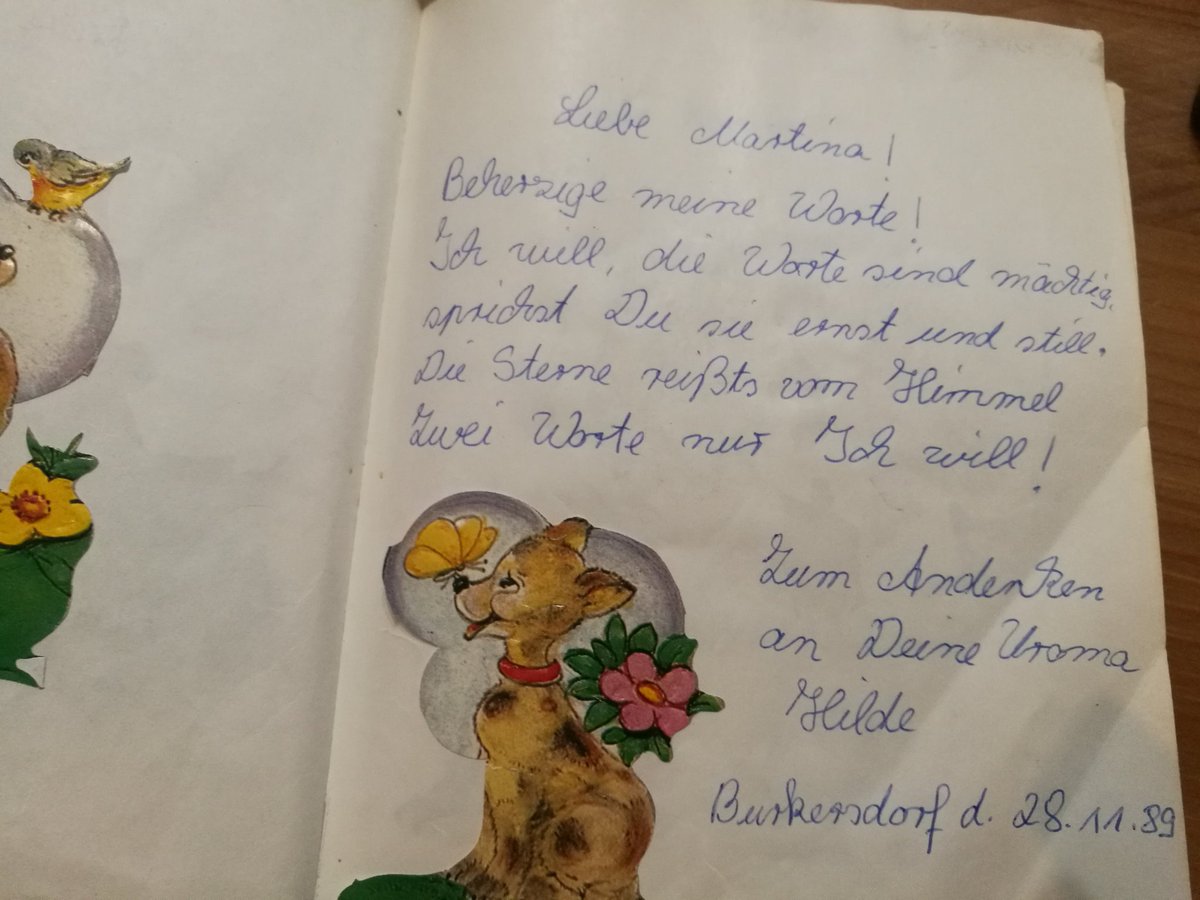 Liebe Martina!
Beherzige meine Worte!
Ich will, die Worte sind mächtig,
sprichst Du sie ernst und still.
Die Sterne reißts vom Himmel
Zwei Worte nur Ich will!
Zum Andenken
an Deine Uroma
Hilde
Burkersdorf d. 28.11.89